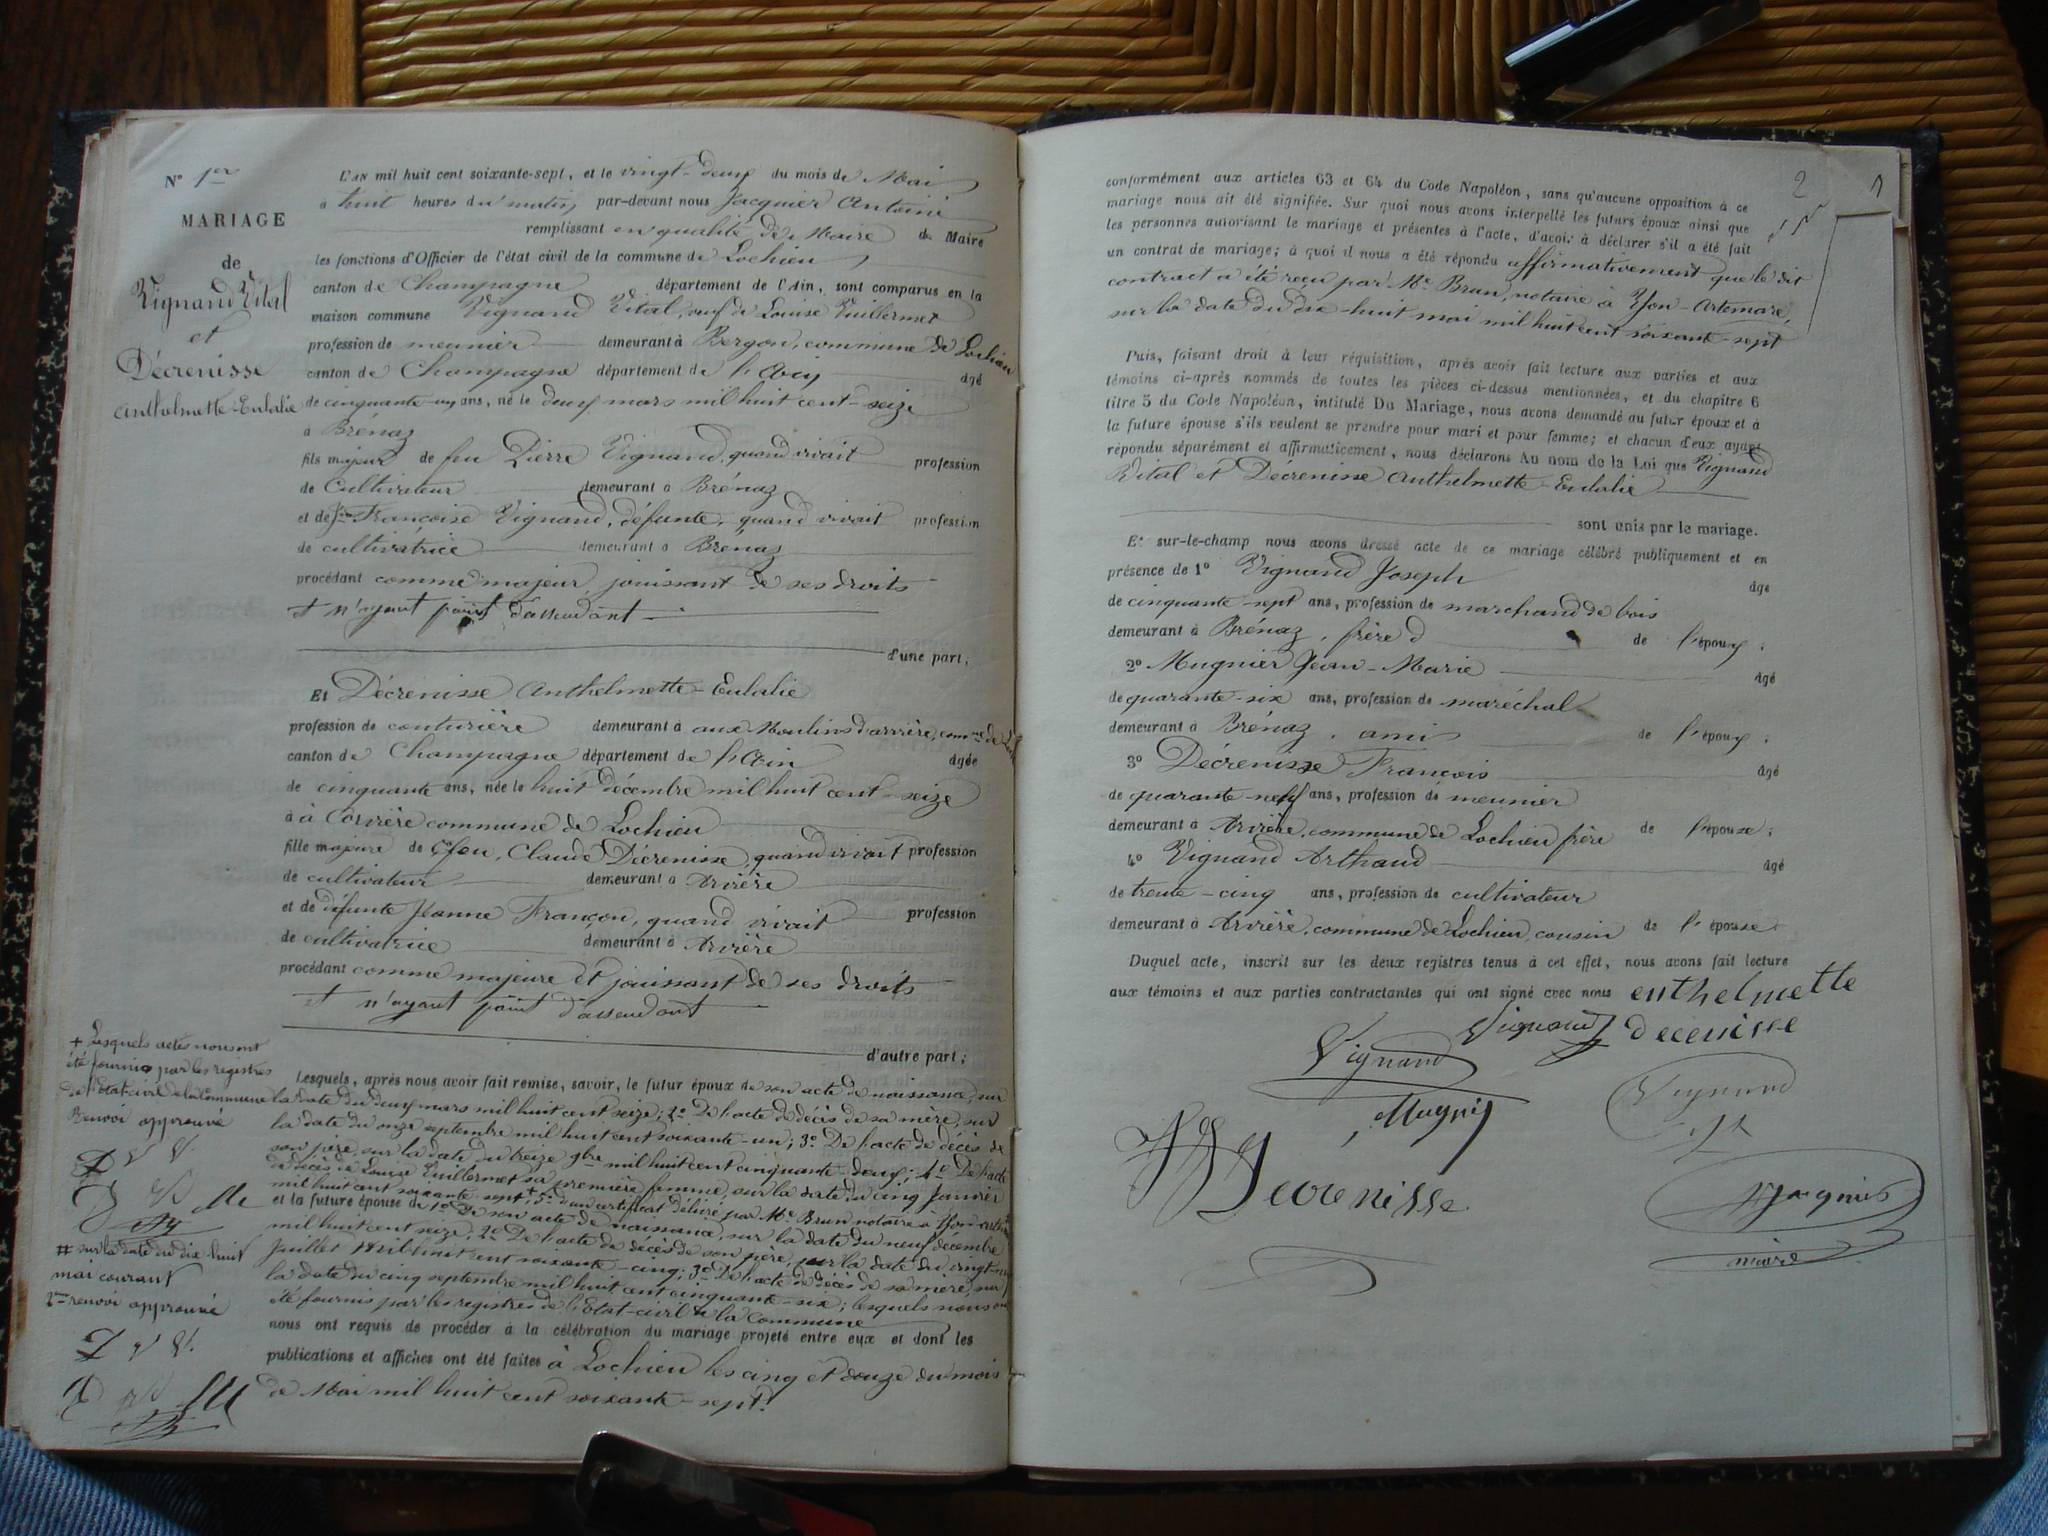 N° 1er
MARIAGE
de
Vignand Vital
et
Décrenisse
Anthelmette-Eulalie
L'an mil huit cent soixante-sept, et le vingt-deux du mois de Mai
à huit heures du matin, par-devant nous Jacquier Antoine
remplissant en qualité de Maire de Maire
les fonctions d'Officier de l'état civil de la commune de Lochieu
canton de Champagne département de l'Ain, sont comparus en la
maison commune Vignand Vital, veuf de Louise Vuillermet
profession de meunier demeurant à Bergon, commune de Lochieu
canton de Champagne département de l'Ain âgé
de cinquante-un ans, né le deux mars mil huit cent-seize
à Brénaz
fils majeur de feu Pierre Vignand, quand vivait profession
de Cultivateur demeurant à Brénaz
et de Françoise Vignand, défunte, quand vivait profession
de cultivatrice demeurant à Brénaz
procédant comme majeur, jouissant de ses droits
et n'ayant point d'assendant
d'une part;
Et Décrenisse Anthelmette-Eulalie
profession de couturière demeurant à aux Moulins d'arvière, comne de
canton de Champagne département de l'Ain âgée
de cinquante ans, née le huit décembre mil huit cent-seize
à à Arvière commune de Lochieu
fille majeure de feu, Claude Décrenisse, quand vivait profession
de cultivateur demeurant à Arvière
et de défunte Jeanne Françon, quand vivait profession
de cultivatrice demeurant à Arvière
procédant comme majeure et jouissant de ses droits
et n'ayant point d'assendant
d'autre part;
Lesquels, après nous avoir fait remise, savoir, le futur époux de son acte de naissance, sur
la date du deux mars mil huit cent seize; 2° De l'acte de décès de sa mère, sur
la date du onze septembre mil huit cent soixante-un; 3° De l'acte de décès de
son père, sur la date du treize 9bre mil huit cent cinquante-deux; 4° De l'acte
de décès de Louise Vuillermet sa première femme, sur la date du cinq Janvier
mil huit cent soixante-sept + 5° d'un certificat délivré par Me Brun notaire à Yon-Arte
et la future épouse de 1° De son acte de naissance, sur la date du neuf décembre
mil huit cent seize, 2° De l'acte de décès de son père, sur la date du vingt
Juillet Mil huit cent soixante-cinq; 3° De l'acte de décès de sa mère, sur
la date du cinq septembre mil huit cent cinquante-six; lesquels nous ont
été fournis par les registres de l'Etat-civil de la Commune
nous ont requis de procéder à la célébration du mariage projeté entre eux et dont les
publications et affiches ont été faites à Lochieu les cinq et douze du mois
de Mai mil huit cent soixante-sept.
+ Lesquels actes nous ont
été fournis par les registres
de l'Etat-civil de la Commune
Renvoi approuvé
# sur la date du dix huit
mai courant
2me renvoi approuvé
2
1
conformément aux articles 63 et 64 du Code Napoléon, sans qu'aucune opposition à ce
mariage nous ait été signifiée. Sur quoi nous avons interpellé les futurs époux ainsi que
les personnes autorisant le mariage et présentes à l'acte, d'avoir à déclarer s'il a été fait
un contrat de mariage; à quoi il nous a été répondu affirmativement que le dit
contract a été reçu par Me Brun, notaire à Yon-Artemare,
sur la date du dix-huit mai mil huit cent soixante-sept
Puis, faisant droit à leur réquisition, après avoir fait lecture aux parties et aux
témoins ci-après nommés de toutes les pièces ci-dessus mentionnées, et du chapitre 6
titre 5 du Code Napoléon, intitulé Du Mariage, nous avons demandé au futur époux et à
la future épouse s'ils veulent se prendre pour mari et pour femme; et chacun d'eux ayant
répondu séparément et affirmativement, nous déclarons Au nom de la Loi que Vignand
Vital et Décrenisse Anthelmette-Eulalie
sont unis par le mariage.
Et sur-le-champ nous avons dressé acte de ce mariage célébré publiquement et en
présence de 1° Vignand Joseph âgé
de cinquante-sept ans, profession de marchand de bois
demeurant à Brénaz, frère de l'époux;
2° Mugnier Jean-Marie âgé
de quarante-six ans, profession de maréchal
demeurant à Brénaz, ami de l'époux;
3° Décrenisse François âgé
de quarante-neuf ans, profession de meunier
demeurant à Arvière, commune de Lochieu frère de l'épouse;
4° Vignand Arthaud âgé
de trente-cinq ans, profession de cultivateur
demeurant à Arvière, commune de Lochieu, cousin de l'épouse
Duquel acte, inscrit sur les deux registres tenus à cet effet, nous avons fait lecture
aux témoins et aux parties contractantes qui ont signé avec nous enthelmette
Vignand decenisse
Vignand
Vignand
Mugnié
Décrenisse
Jaquier
maire